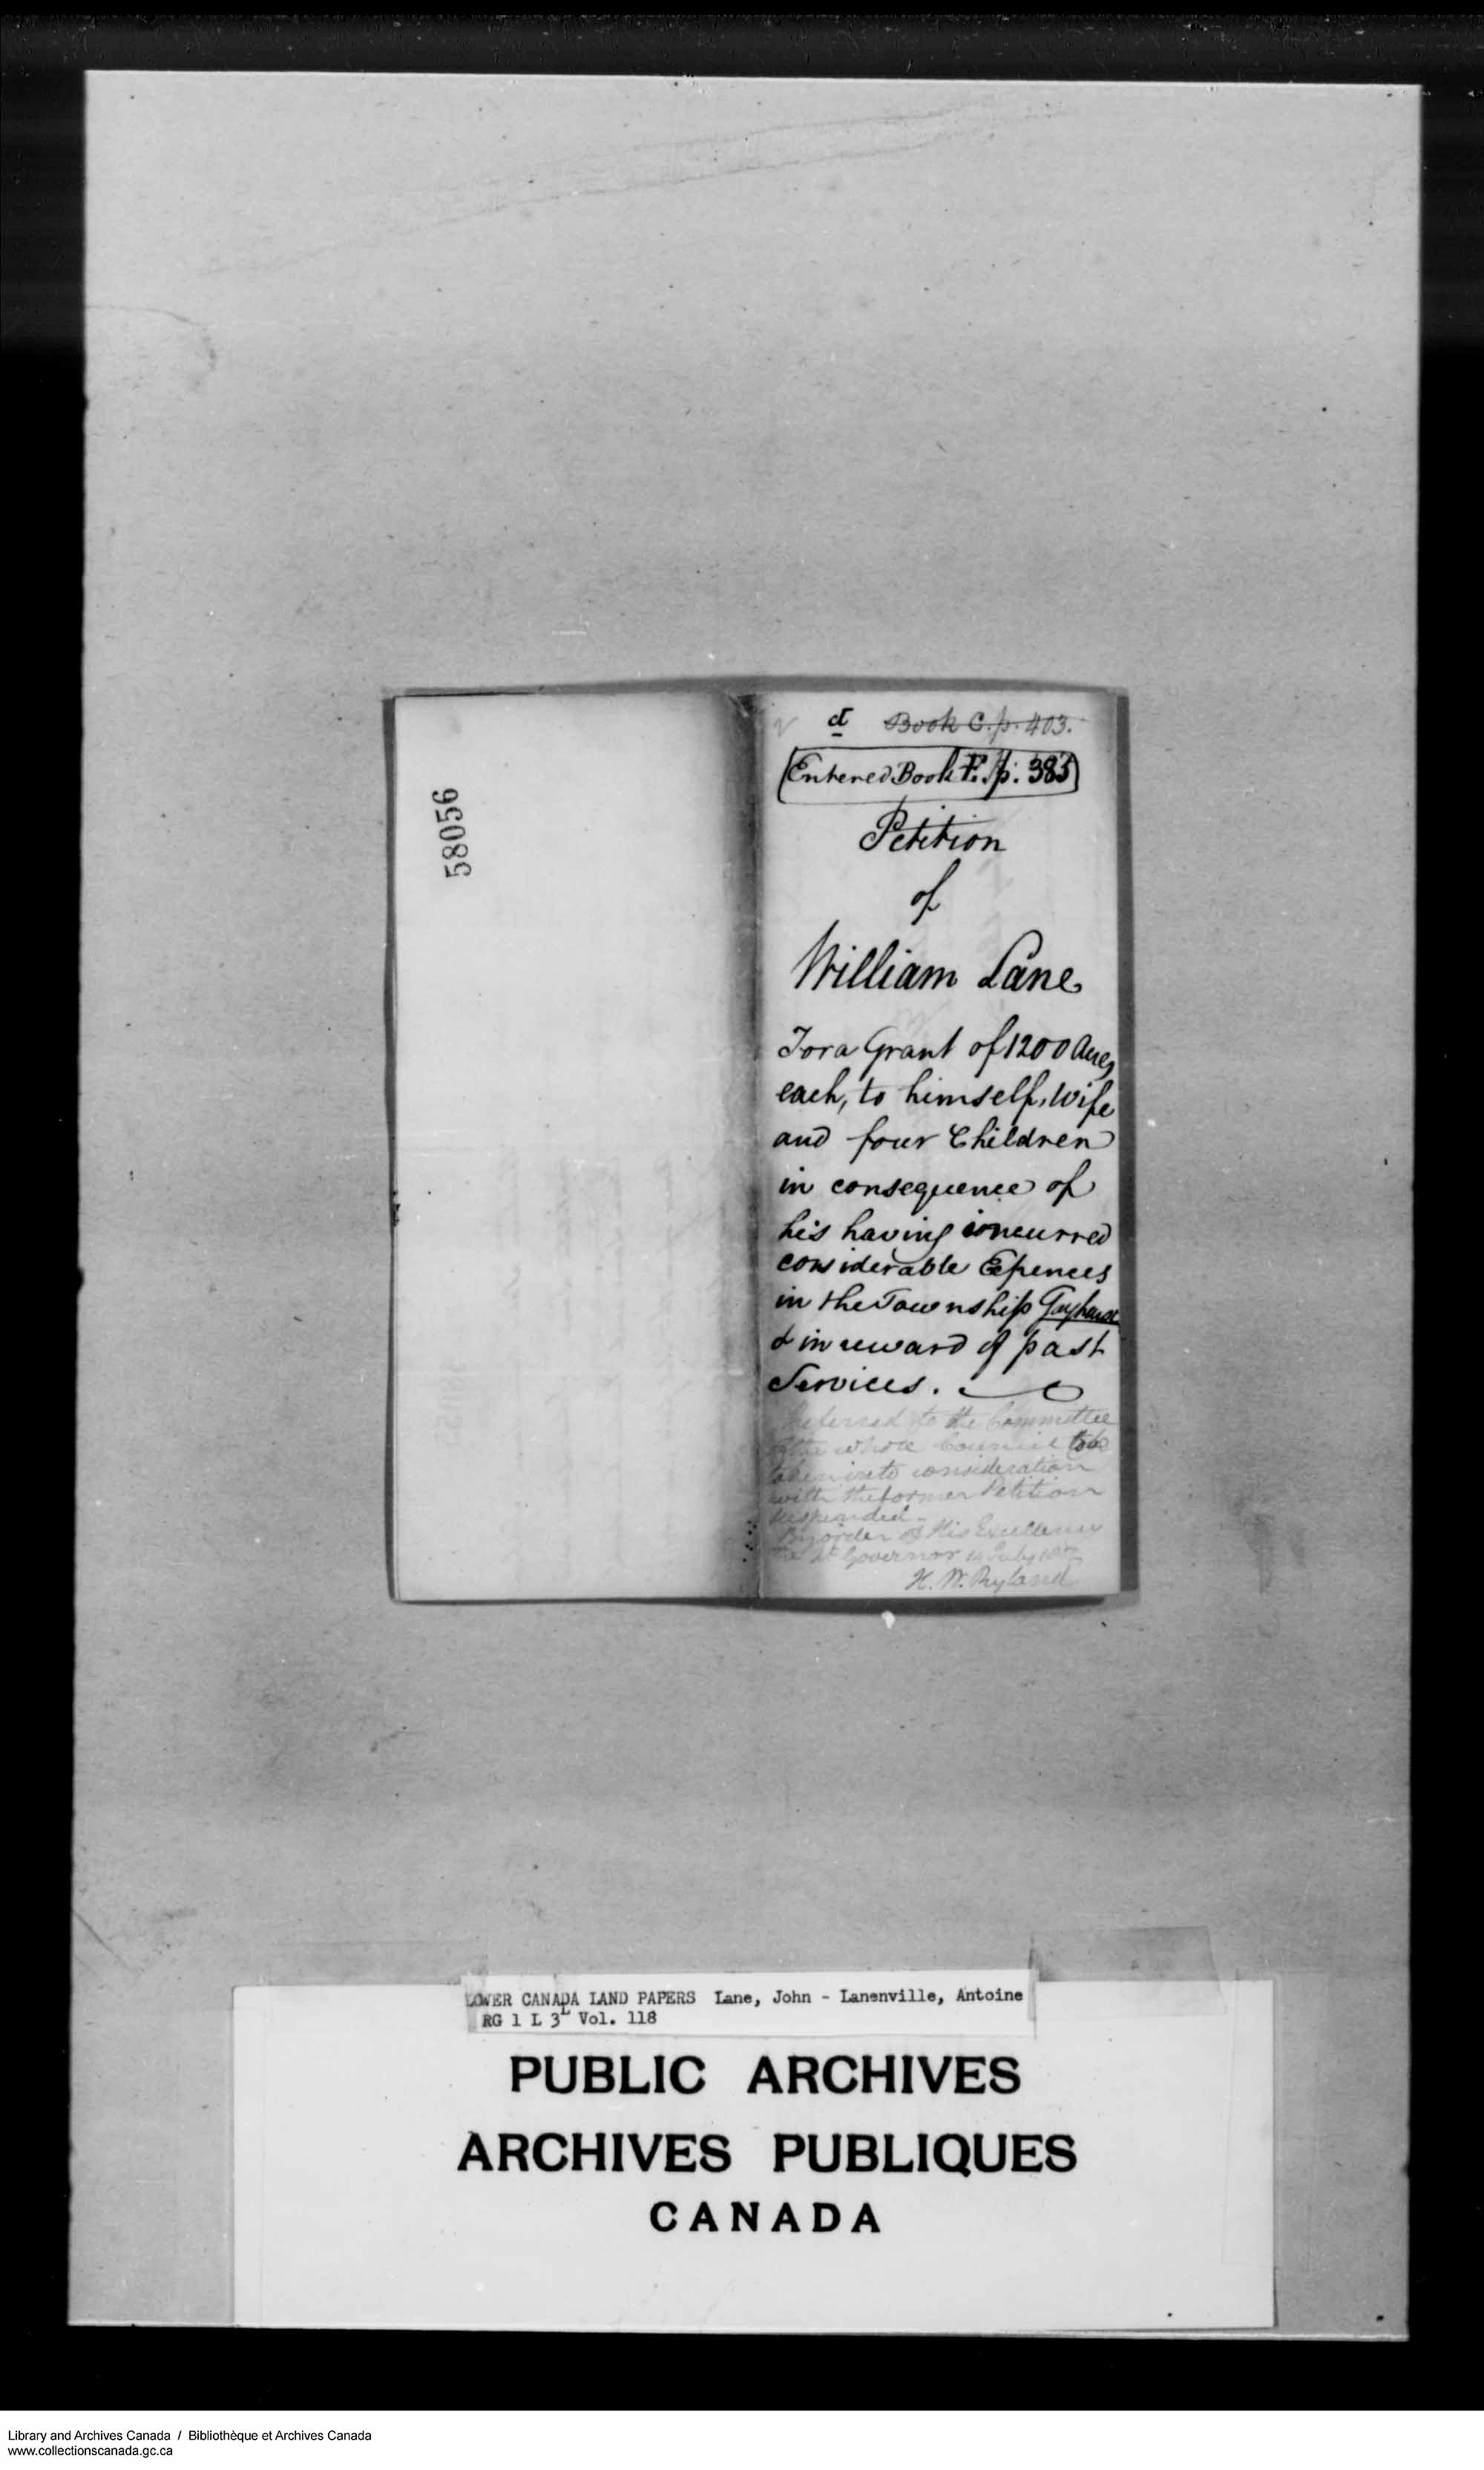 58056
ct Book C. p. 403.
Entered Book F. p. 383
Petition
of
William Lane
For a Grant of 1200 Acres
each, to himself, Wife
and four Children
in consequence of
his having incurred
considerable Expences
in the Township Gayhurst
& in reward of past
Services.
Referred to the Committee
of the whole Council to be
taken into consideration
with the former Petition
suspended -
By order of His Excellency
the Lt Governor July
H. W. Ryland
LOWER CANADA LAND PAPERS Lane, John - Lanenville, Antoine
RG 1 L 3L Vol. 118
PUBLIC ARCHIVES
ARCHIVES PUBLIQUES
CANADA
Library and Archives Canada / Bibliothèque et Archives Canada
www.collectionscanada.gc.ca